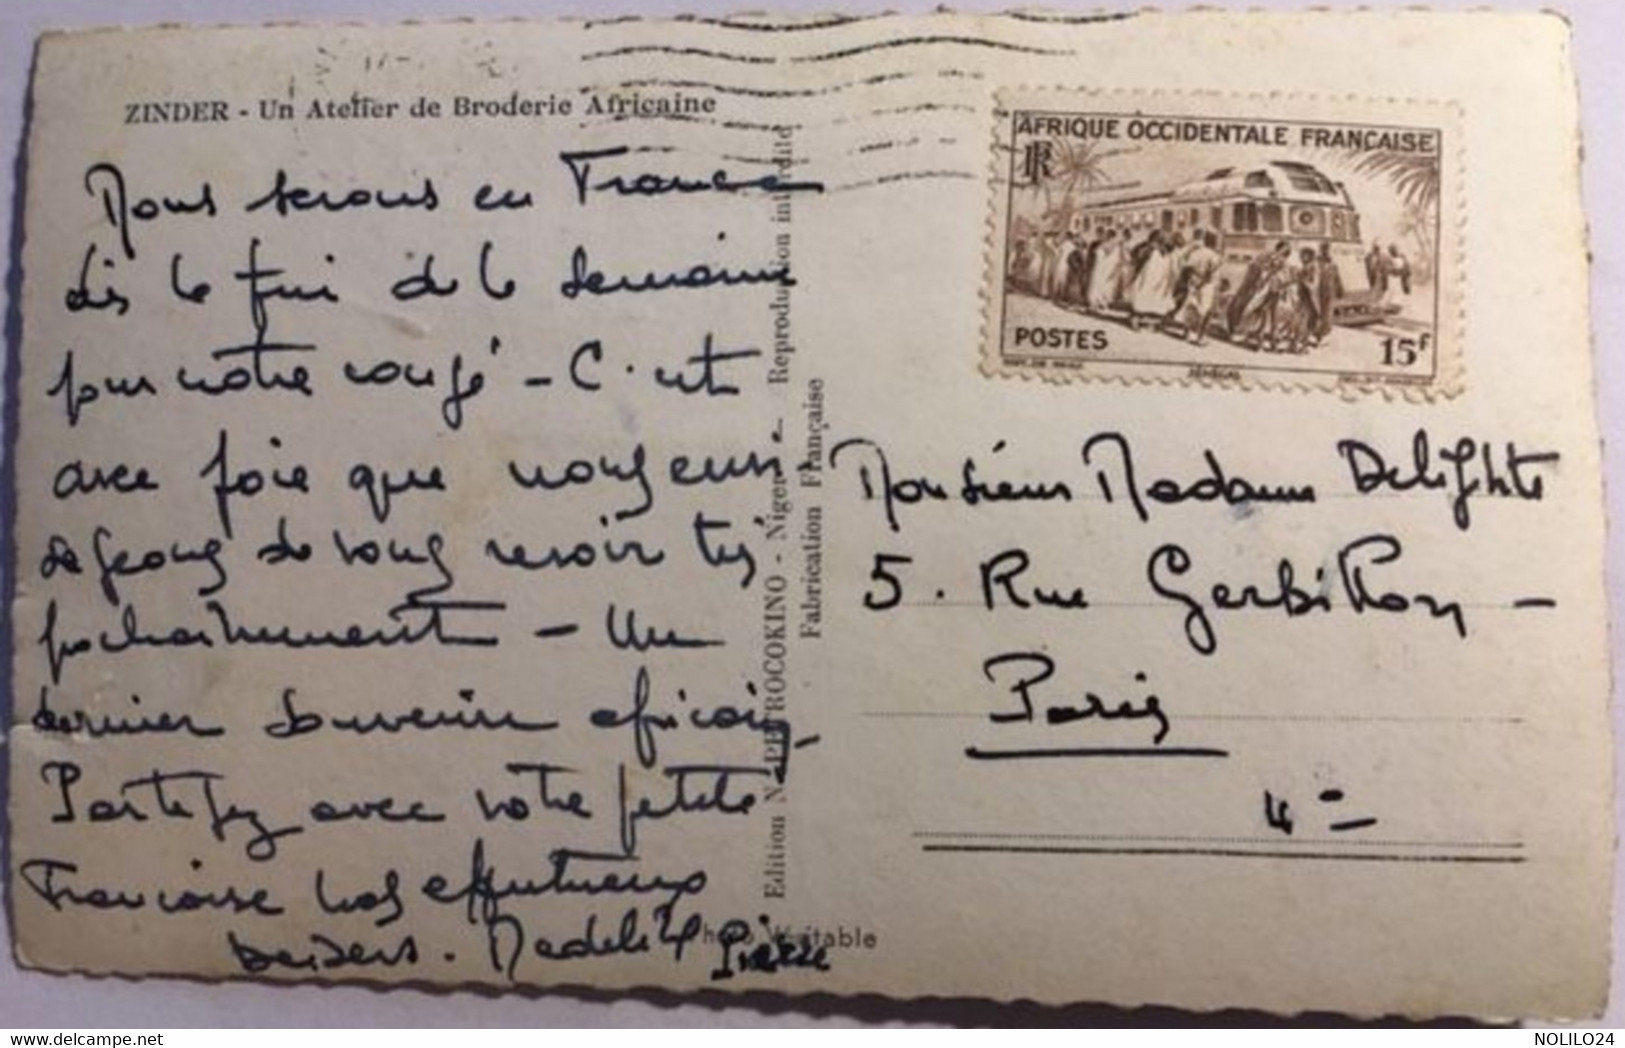 ZINDER - Un Atelier de Broderie Africaine
Nous serons en France
dès la fin de la semaine
pour notre congé - C'est
avec joie que nous envi
sageons de vous revoir très
prochainement - Un
dernier souvenir africain,
Partagez avec votre petite
Françoise nos affectueux
baisers. Madeleine Pierre
Edition NAPPETROCOKINO - Niger - Reproduction interdite
Fabrication Française
Photo Véritable
AFRIQUE OCCIDENTALE FRANÇAISE
RF
POSTES
15F
SÉNÉGAL
Monsieur Madame Delighte
5. Rue Gerbillon -
Paris
NOLILO24